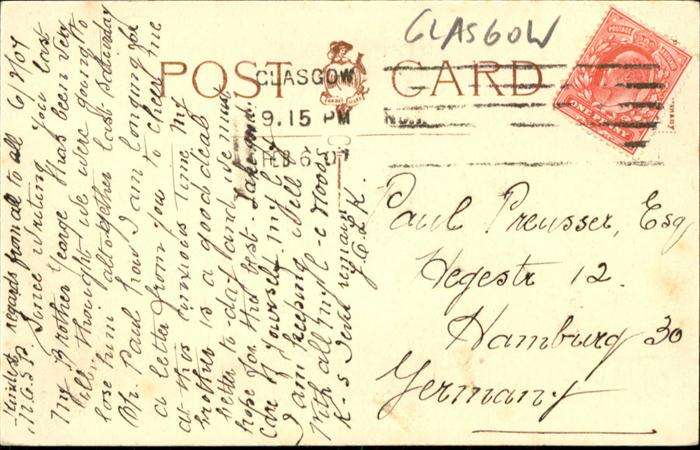 GLASGOW
POST CARD
GLASGOW
9.15 PM
FEB 6 07
ONE PENNY
Paul Preusser, Esq
Hegestr 12.
Hamburg 30
Germany
regards from all to all 6/2/07
Since writing you last
My Brother George has been very
ill thought we were going to
lose him altogether last Saturday
Oh. Paul how I am longing for
a letter from you to cheer me
at this anxious time My
brother is a good deal
better to-day and we must
hope for the best. Take
Care of yourself my
I am keeping well
With all my l-e
K-s I ever remain